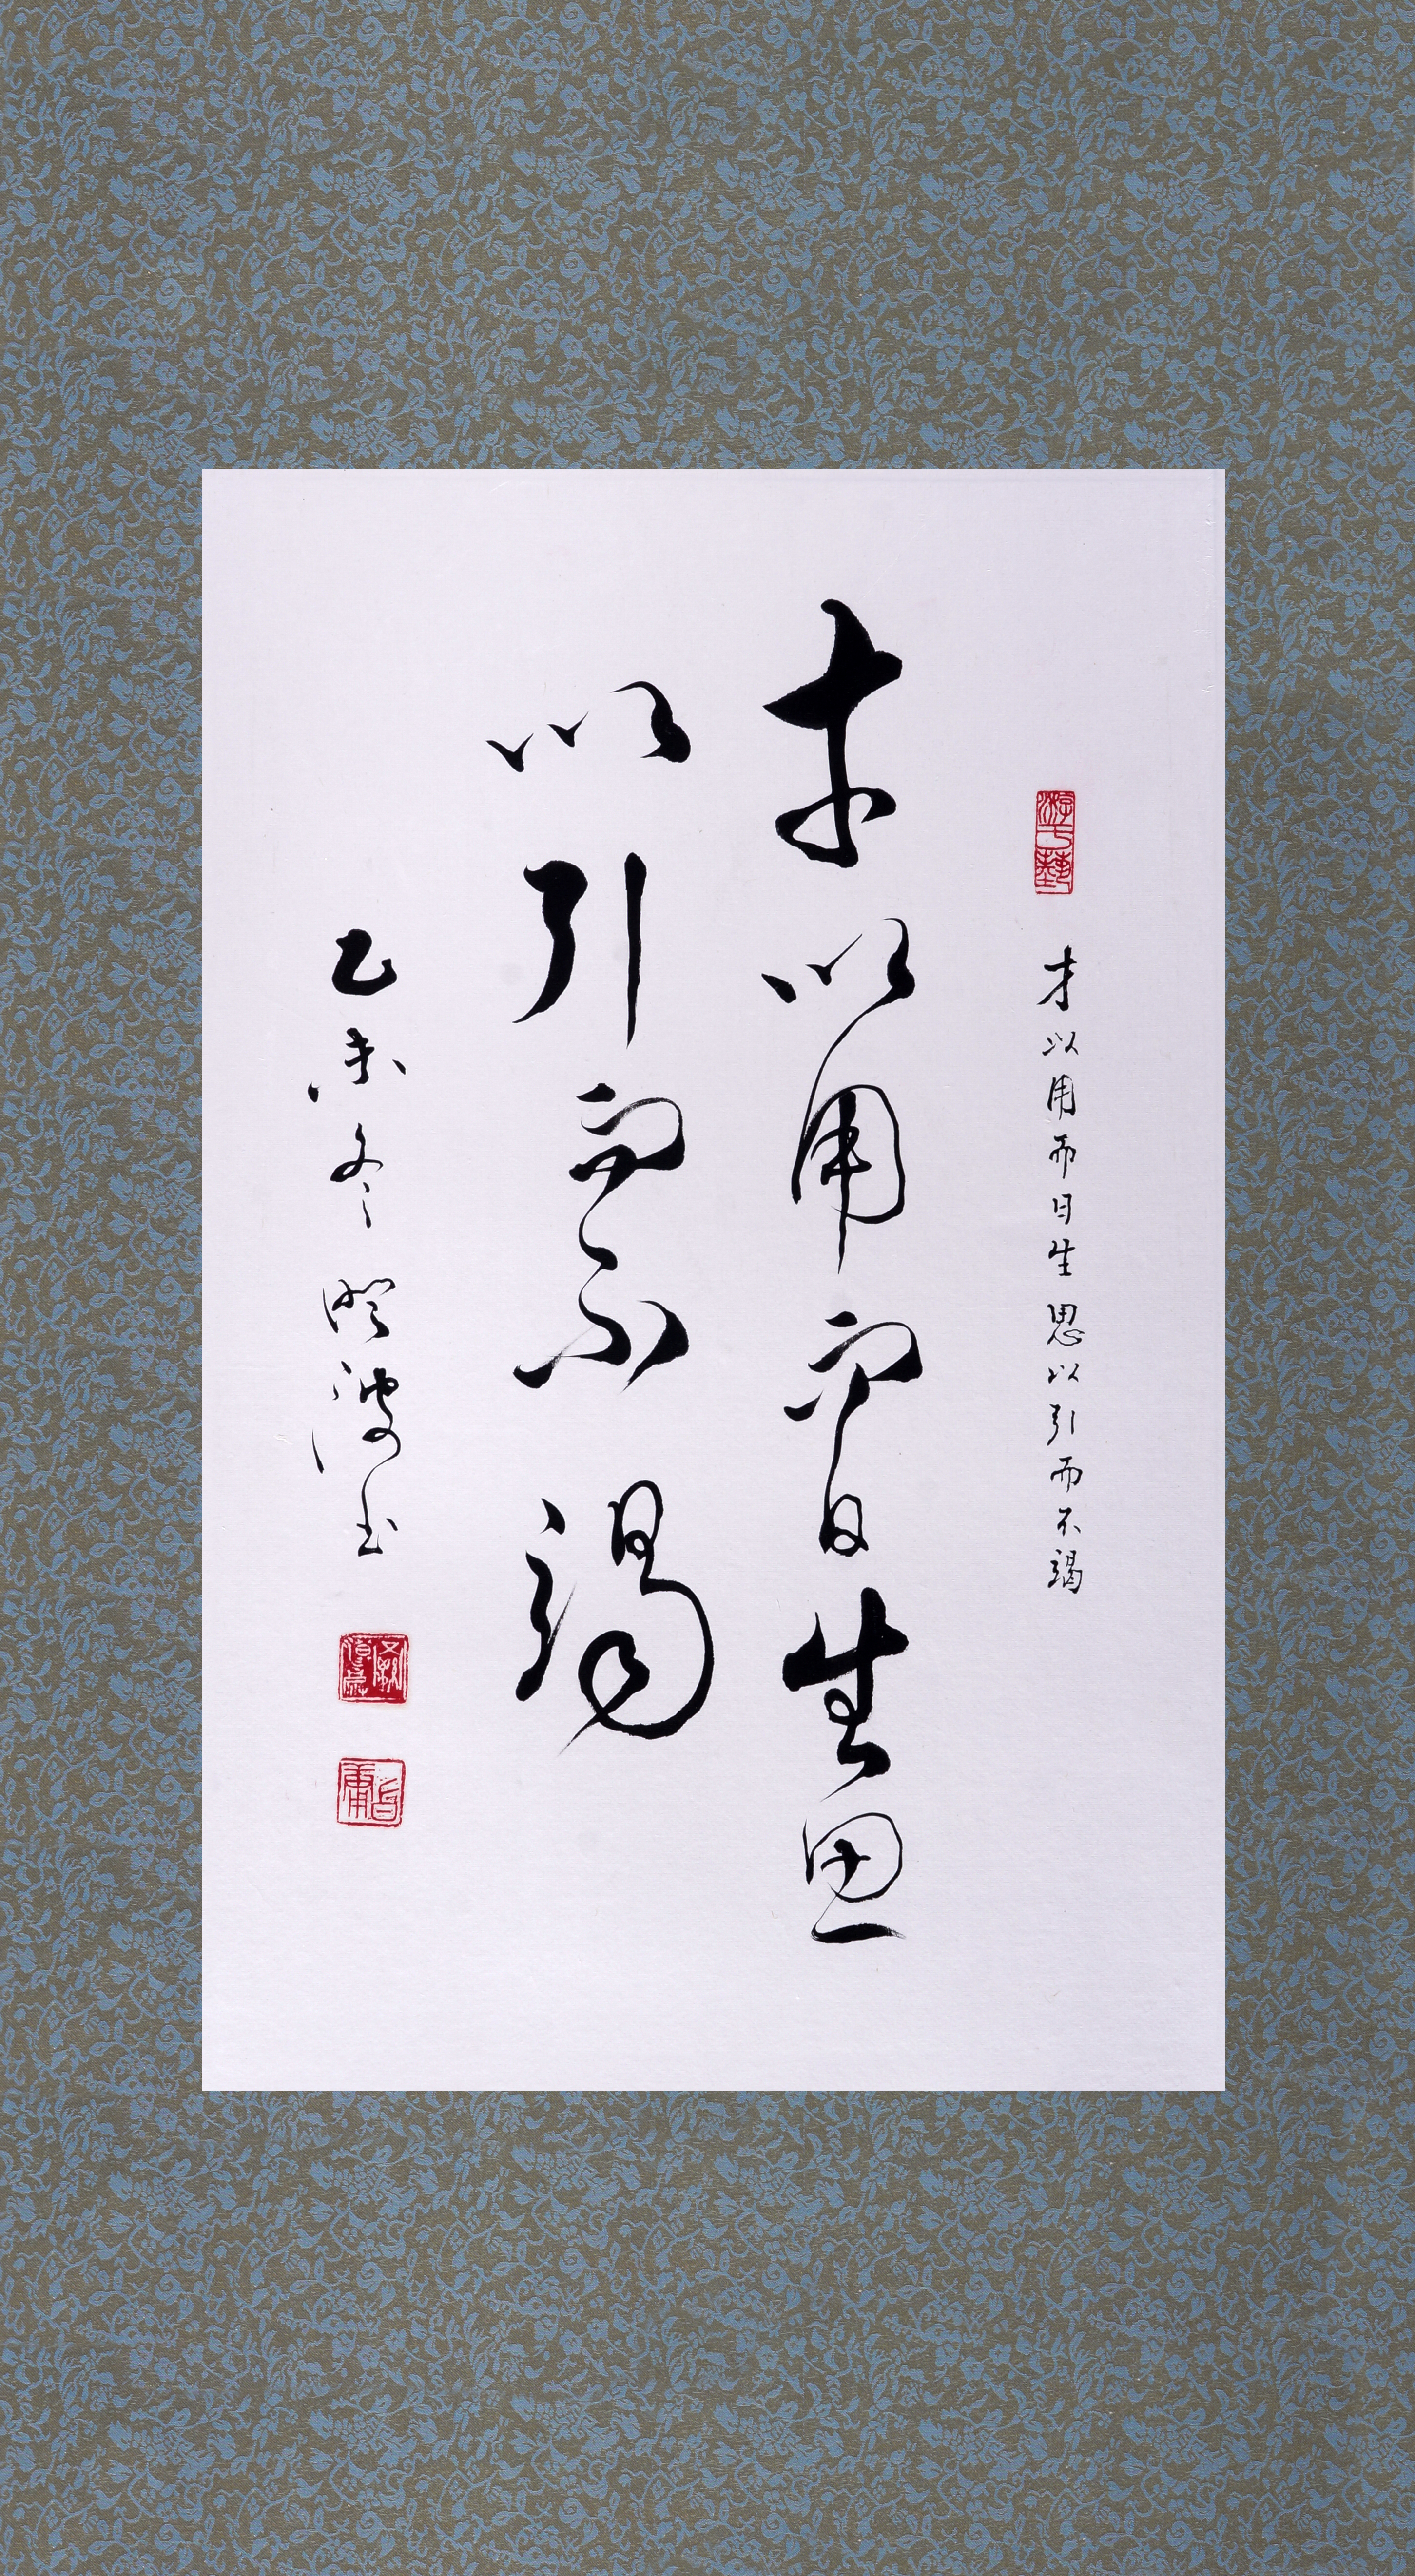 游于艺
才以用而日生思以引而不竭
才以用而日生思
以引而不竭
乙未冬澄波书